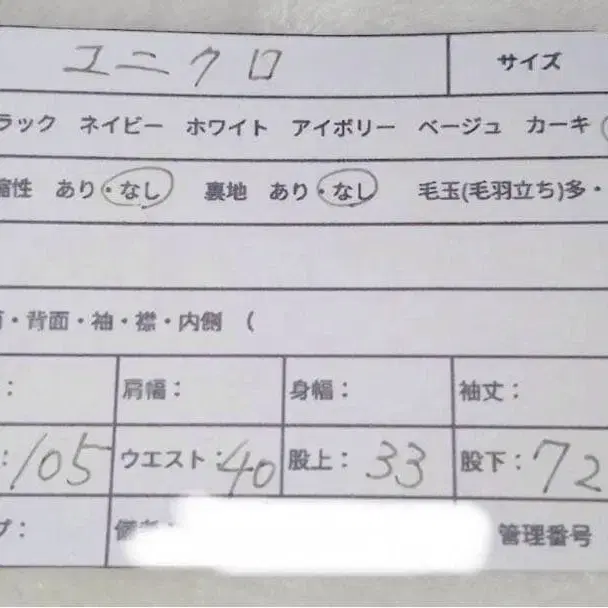 ユニクロ サイズ
ラック ネイビー ホワイト アイボリー ベージュ カーキ
縮性 あり・なし 裏地 あり・なし 毛玉(毛羽立ち)多・
・背面・袖・襟・内側 (
: 肩幅: 身幅: 袖丈:
:105 ウエスト:40 股上:33 股下:72
プ: 管理番号